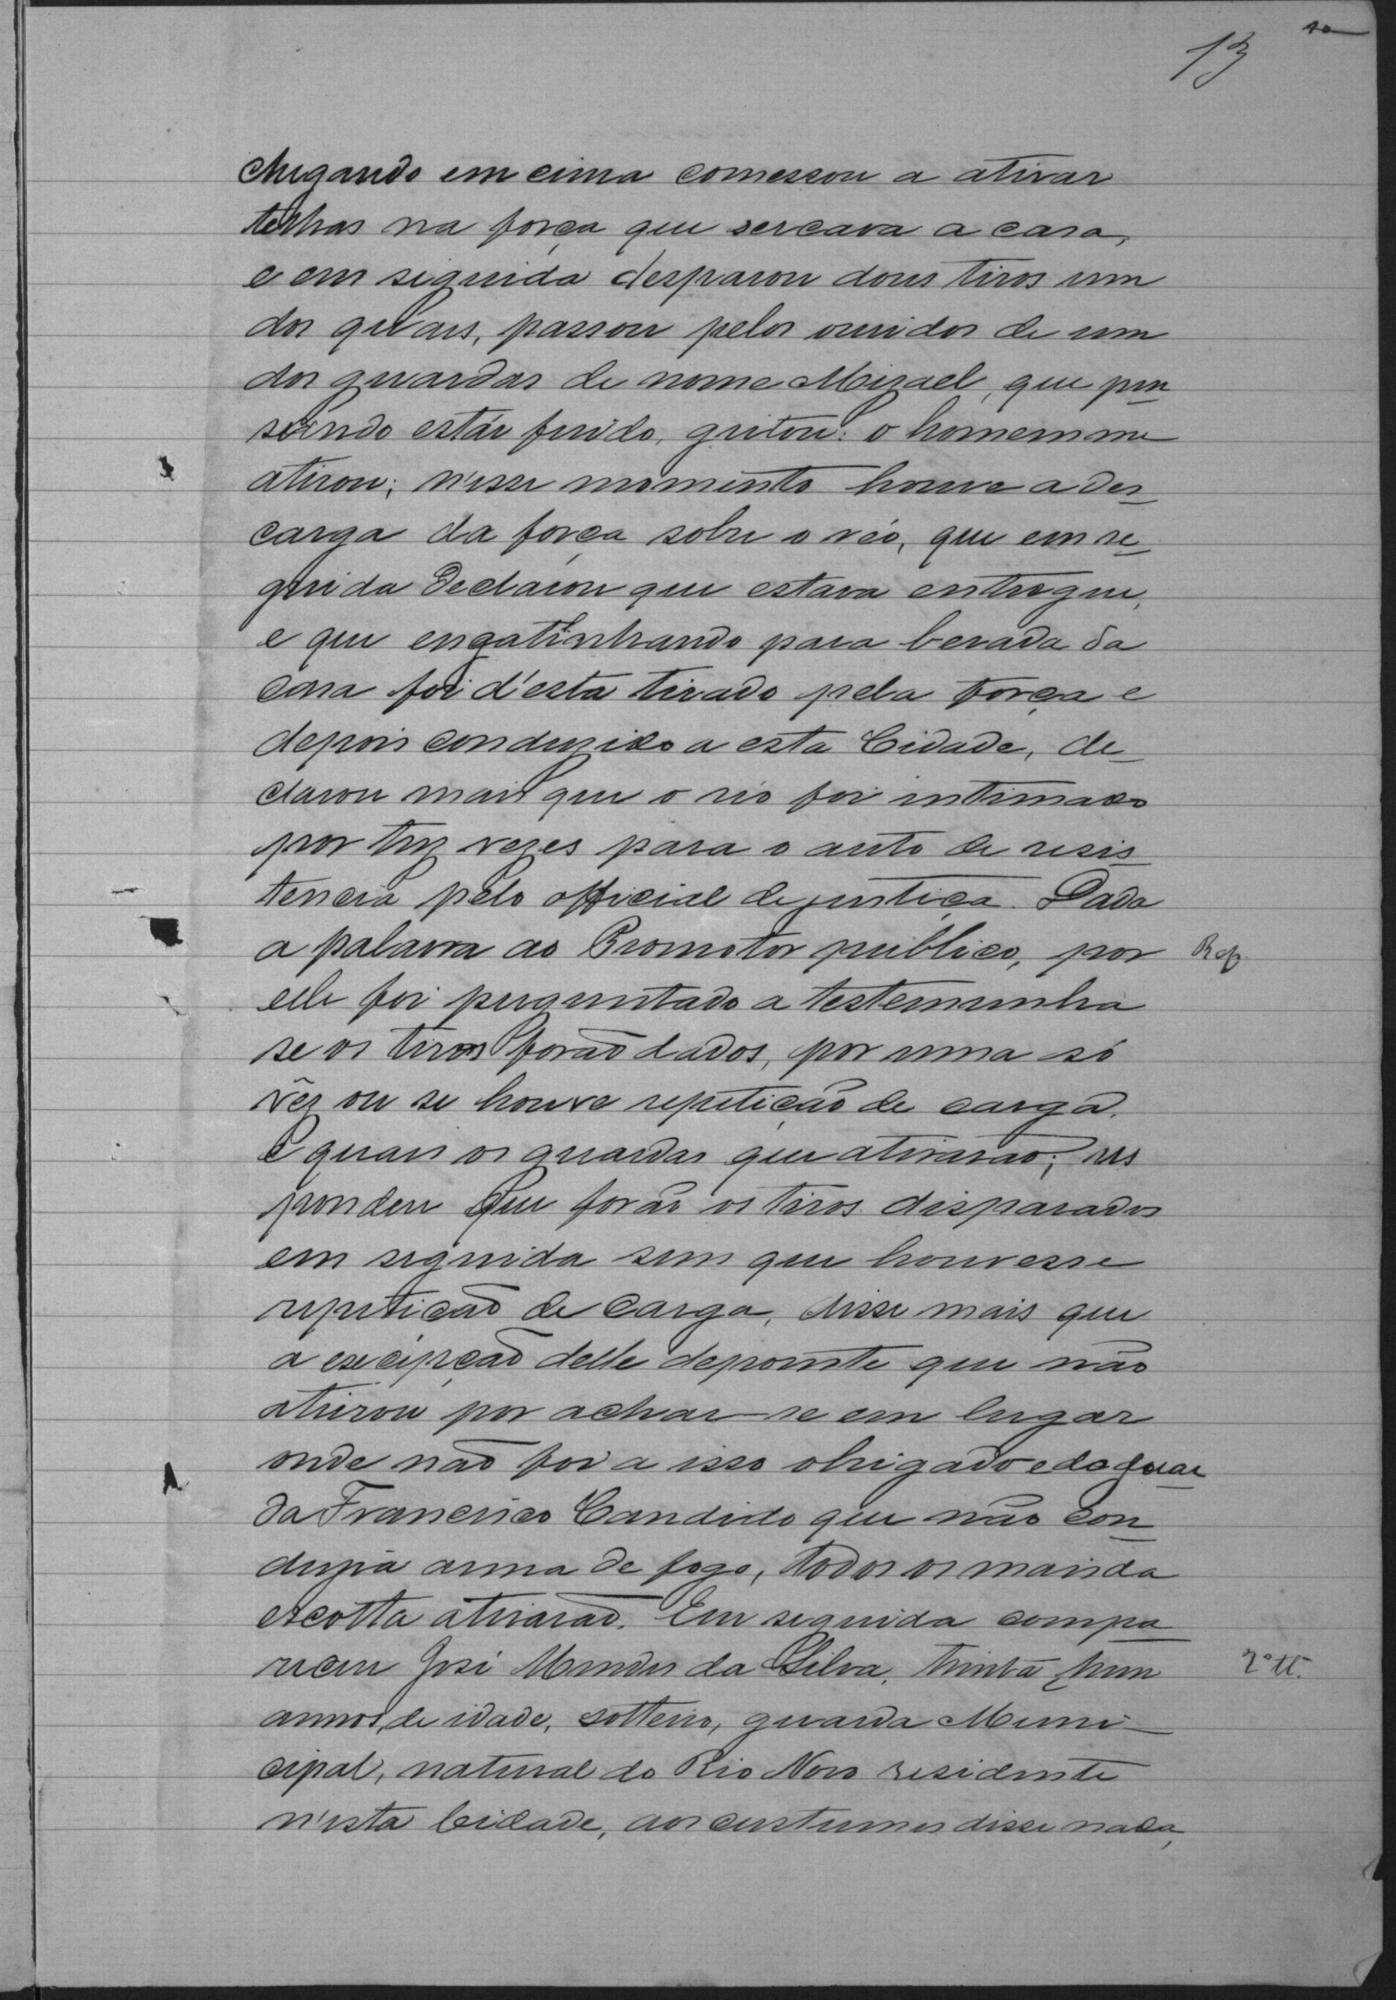 13
chegando em cima comessou a atirar
telhas na força que sercava a casa,
e em siguida desparou dous tiros um
dos quaes, passou pelos ouvidos de um
dos guardas de nome Mizael, que pen
sando estár firido, gritou: o homem me
atirou; n'esse momento houve a des_
carga da força sobre o réo, que em se_
guida declarou que estava entregue,
e que engatinhando para berada da
casa foi d'esta tirado pela força e
depois conduzido a esta Cidade, de_
clarou mais que o réo foi intimado
por trez vezes para o auto de resis
tencia pelo official de justiça. Dada
a palavra ao Promotor publico, por
Rep.
elle foi perguntado a testemunha
se os tiros forão dados, por uma só
vêz ou se houve repetição de carga.
E quaes os guardas que atirarão; res
pondeu que forão os tiros disparados
em siguida sem que houvesse
repetição de carga, disse mais que
a excepção delle depoente que não
atirou por achar-se em lugar
onde não foi a isso obrigado e do guar
da Francisco Candido que não con_
dusia arma de fogo, todos os mais da
escolta atirarão. Em seguida compa_
receu José Mendes da Silva, trinta hum
2ª tt.
annos de idade, solteiro, guarda Muni_
cipal, natural do Rio Novo residente
n'esta Cidade, aos custumes disse nada,